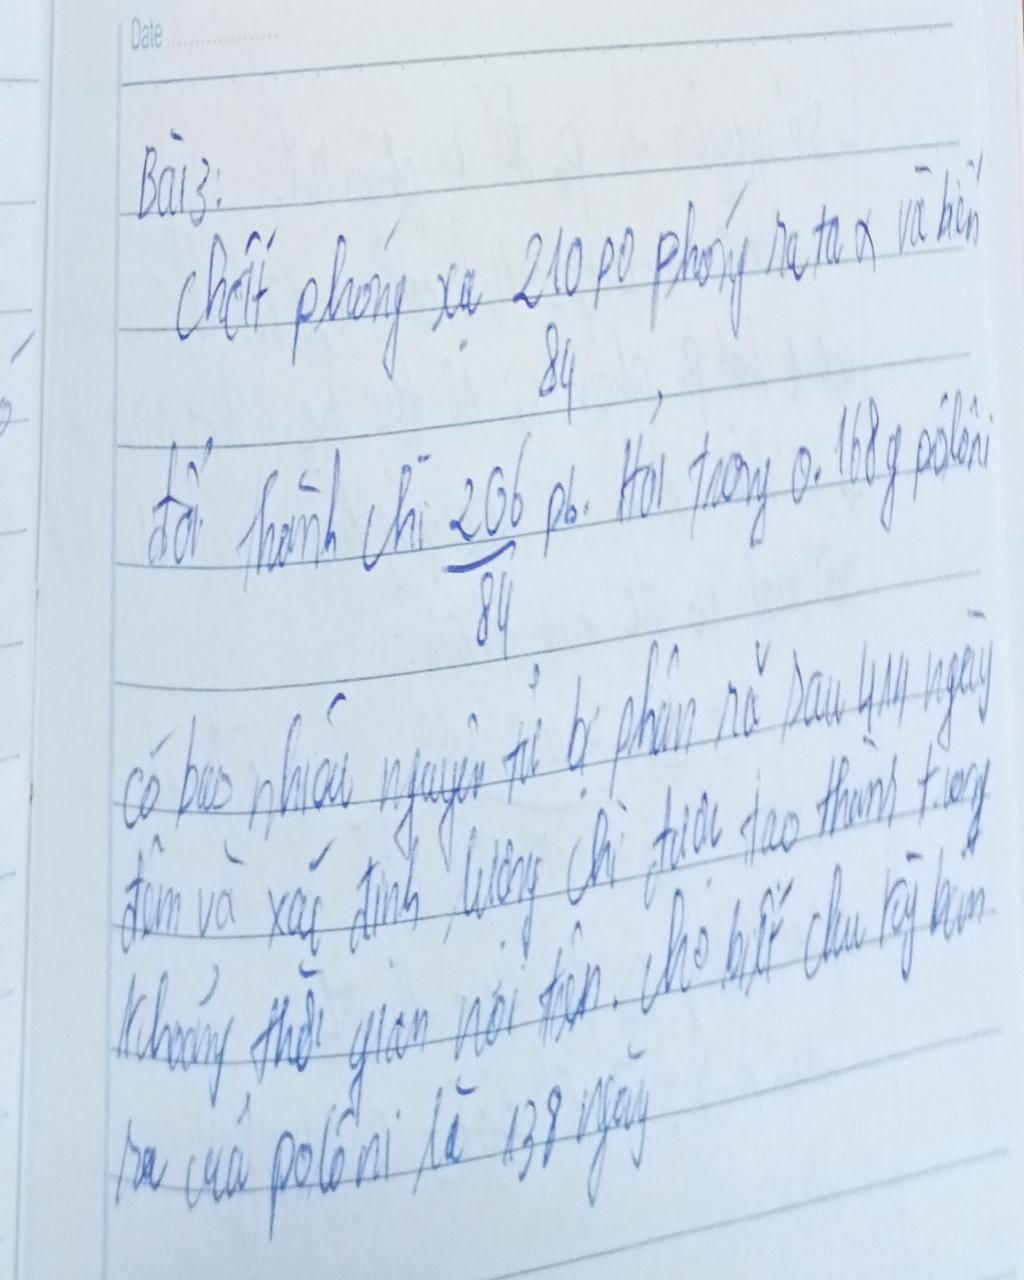 Date
Bài 3:
Chất phóng xạ 210 po phóng ra ta α và biến
84
đổi thành chì 206 pb. Hỏi trong 0.168g pôlôni
84
có bao nhiêu nguyên tử bị phân rã sau 414 ngày
đêm và xác định lượng chì được tạo thành trong
khoảng thời gian nói trên. cho biết chu kỳ bán
rã của polôni là 138 ngày